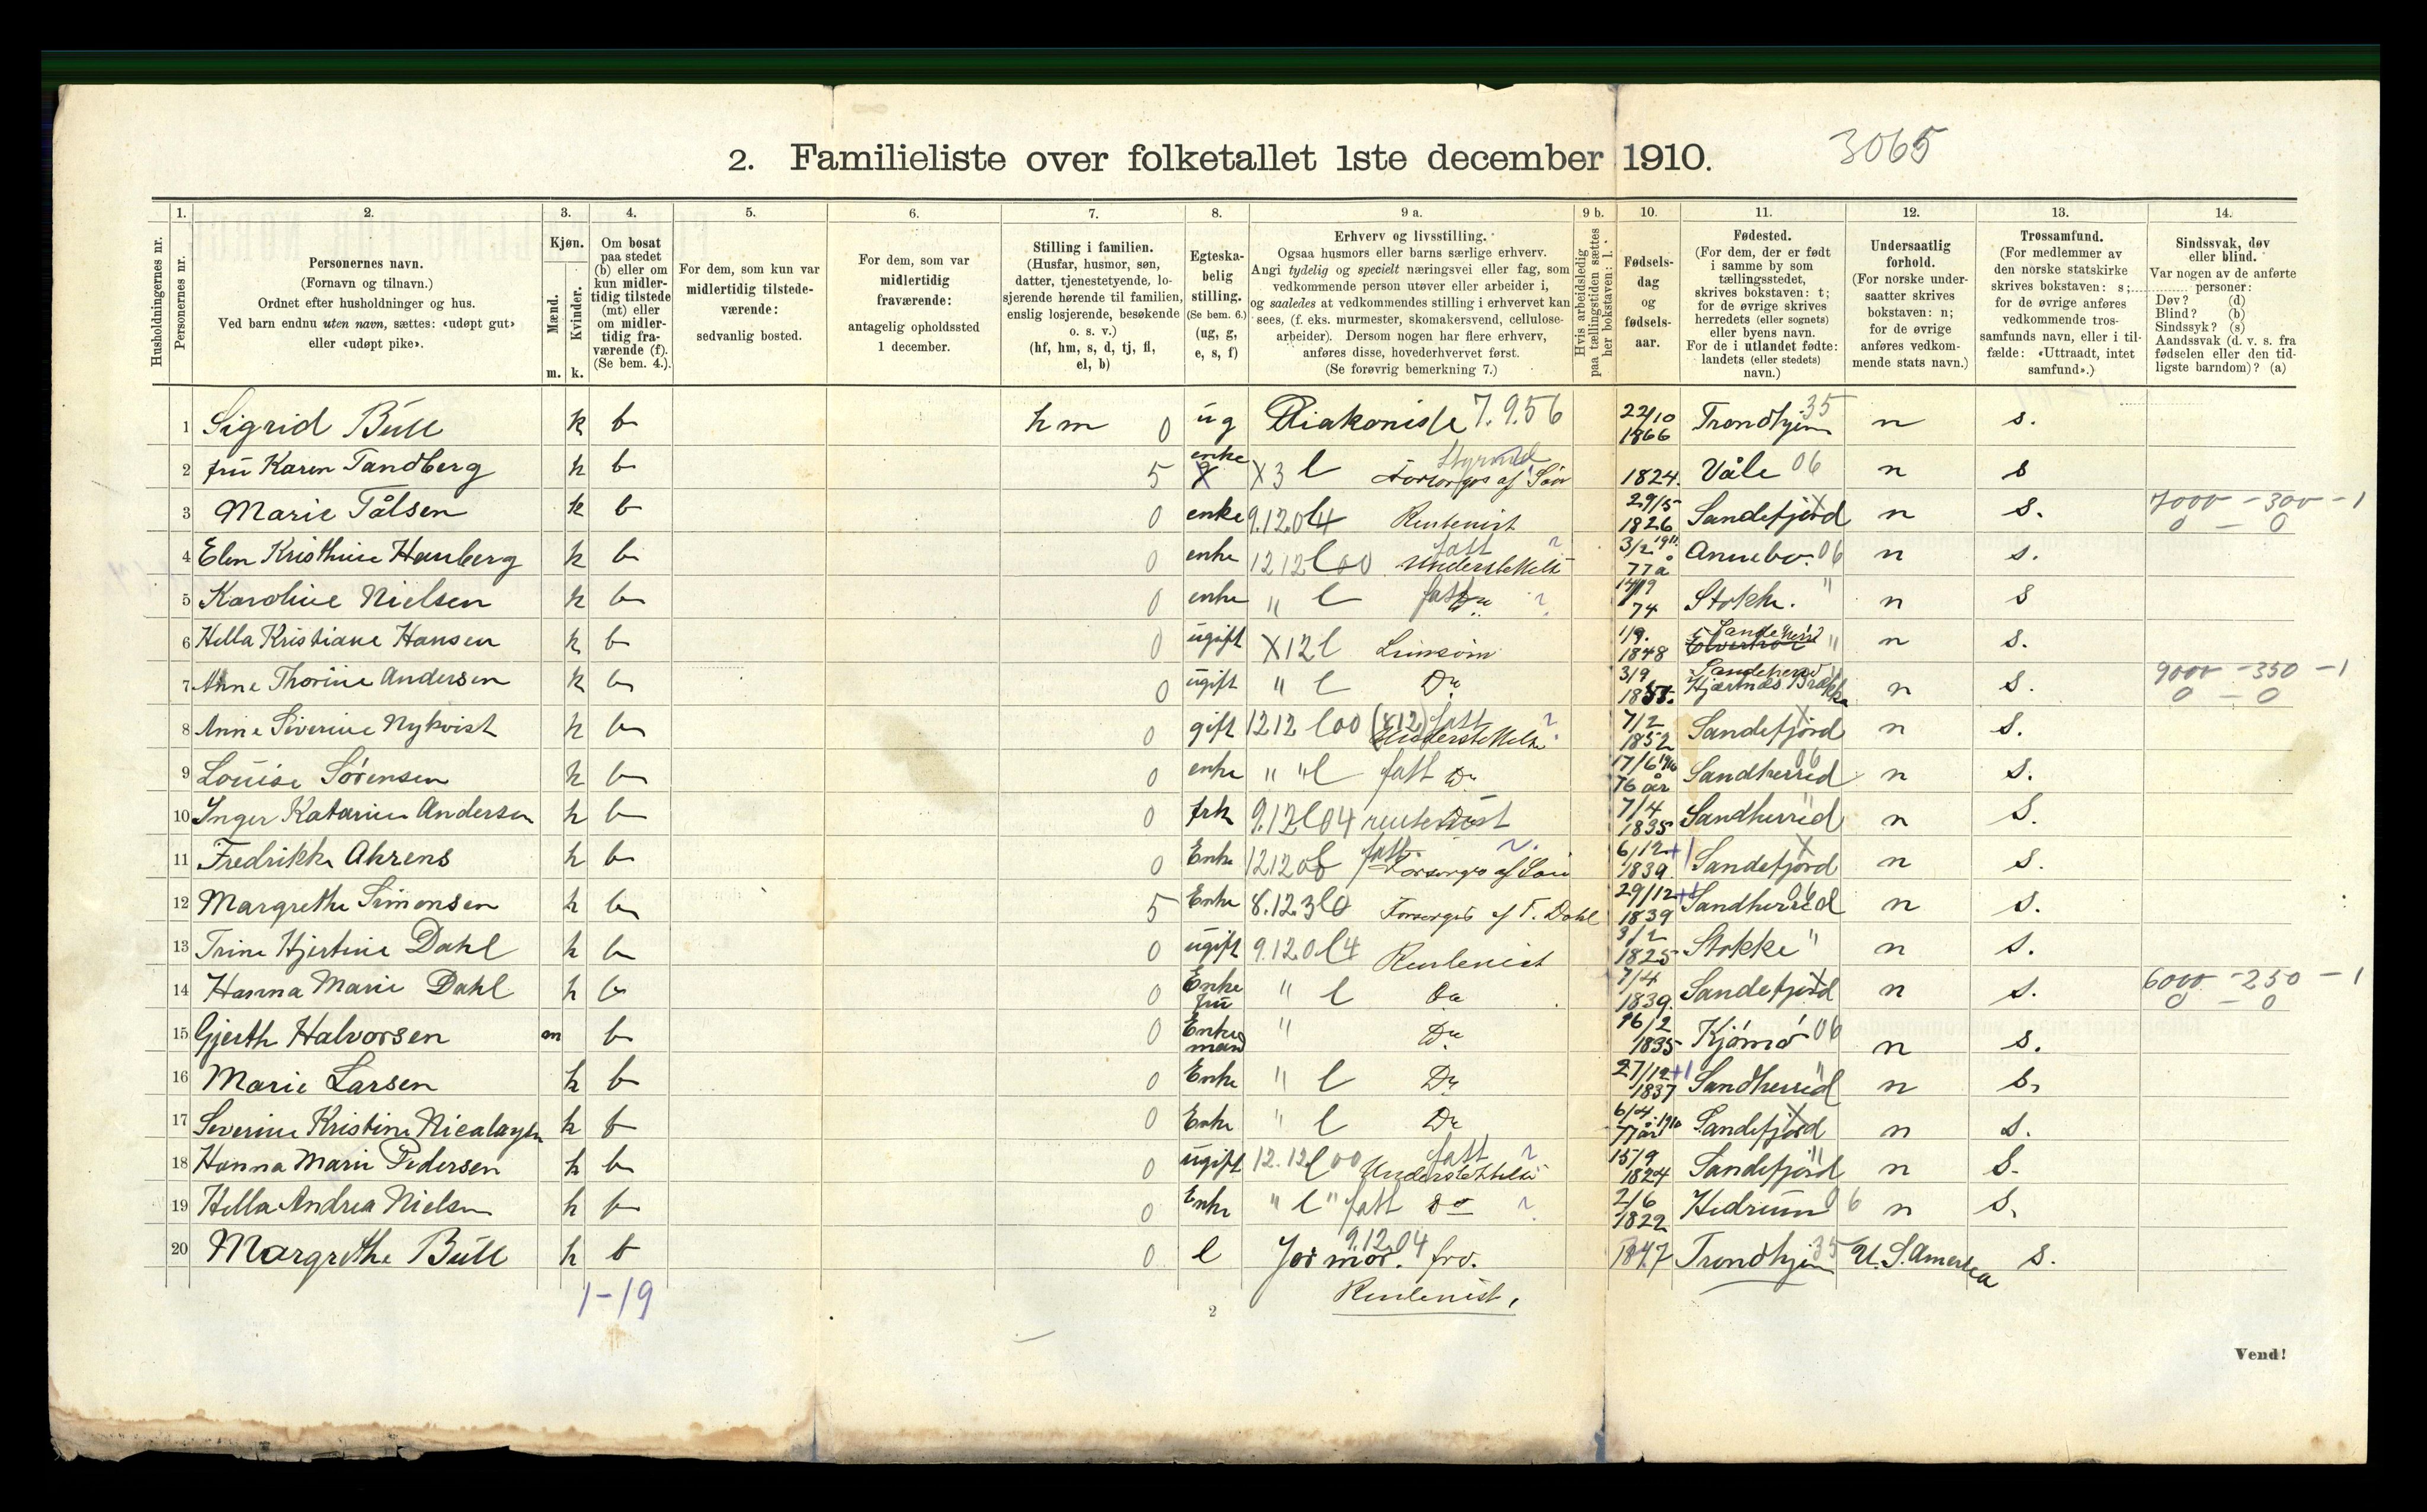 2. Familieliste over folketallet 1ste december 1910. 3065
1. 2. 3. 4. 5. 6. 7. 8. 9 a. 9 b. 10. 11. 12. 13. 14.
Husholdningernes nr.
Personernes nr.
Personernes navn.
(Fornavn og tilnavn.)
Ordnet efter husholdninger og hus.
Ved barn endnu uten navn, sættes: «udøpt gut»
eller «udøpt pike».
Kjøn.
Mænd.
Kvinder.
m. k.
Om bosat
paa stedet
(b) eller om
kun midler-
tidig tilstede
(mt) eller
om midler-
tidig fra-
værende (f).
(Se bem. 4.).
For dem, som kun var
midlertidig tilstede-
værende:
sedvanlig bosted.
For dem, som var
midlertidig
fraværende:
antagelig opholdssted
1 december.
Stilling i familien.
(Husfar, husmor, søn,
datter, tjenestetyende, lo-
sjerende hørende til familien,
enslig losjerende, besøkende
o. s. v.)
(hf, hm, s, d, tj, fl,
el, b)
Egteska-
belig
stilling.
(Se bem. 6.)
(ug, g,
e, s, f)
Erhverv og livsstilling.
Ogsaa husmors eller barns særlige erhverv.
Angi tydelig og specielt næringsvei eller fag, som
vedkommende person utøver eller arbeider i,
og saaledes at vedkommendes stilling i erhvervet kan
sees, (f. eks. murmester, skomakersvend, cellulose-
arbeider). Dersom nogen har flere erhverv,
anføres disse, hovederhvervet først.
(Se forøvrig bemerkning 7.)
Hvis arbeidsledig
paa tællingstiden sættes
her bokstaven: l.
Fødsels-
dag
og
fødsels-
aar.
Fødested.
(For dem, der er født
i samme by som
tællingsstedet,
skrives bokstaven: t;
for de øvrige skrives
herredets (eller sognets)
eller byens navn.
For de i utlandet fødte:
landets (eller stedets)
navn.)
Undersaatlig
forhold.
(For norske under-
saatter skrives
bokstaven: n;
for de øvrige
anføres vedkom-
mende stats navn.)
Trossamfund.
(For medlemmer av
den norske statskirke
skrives bokstaven: s;
for de øvrige anføres
vedkommende tros-
samfunds navn, eller i til-
fælde: «Uttraadt, intet
samfund».)
Sindssvak, døv
eller blind.
Var nogen av de anførte
personer:
Døv? (d)
Blind? (b)
Sindssyk? (s)
Aandssvak (d. v. s. fra
fødselen eller den tid-
ligste barndom)? (a)
1 Sigrid Bull k b hm 0 ug Diakonisse 7.9.56 22/10 1866 Trondhjem 35 n s.
2 fru Karen Tandberg k b 5 enke X3 l Forsørges af Søn 1824. Våle 06 n s
3 Marie Tålsen k b 0 enke 9.12.04 l Rentenist 29/5 1826 Sandefjord n s. 7000 - 300 - 1 0 - 0
4 Elen Kristhine Hanberg k b 0 enke 12 12 l 00 fatt Understøttelse 3/2 1911 77 å 06 n s.
5 Karoline Nielsen k b 0 enke " l fatt Do 14/9 74 Stokke. " n s
6 Hella Kristiane Hansen k b 0 ugift X12 l 1/9. 1848 Sandeherred " n s.
7 Anne Thorine Andersen k b 0 ugift " l Do 3/9 Sandeherred Hjertnæs n s. 9000 - 350 - 1 0 - 0
8 Anne Siverine Nykvist k b 0 gift 12 12 l 00 (812) fatt Understøttelse 7/2 1852 Sandefjord n s.
9 Louise Sørensen k b 0 enke " " l fatt Do 17/6 1910 76 år Sandherred 06 n s.
10 Inger Katarine Andersen k b 0 frk 9.12 l 04 rentenist 7/4 1835 Sandherred " n s.
11 Fredrikke Ahrens k b 0 Enke 12 12 fatt Forsørges af Søn 6/12 +1 1839 Sandefjord n s.
12 Margrethe Simonsen k b 5 Enke 8.12.3 l 0 Forsørges af T. Dahl 29/12 +1 1839 Sandherred 06 n s.
13 Trine Hjertine Dahl k b 0 ugift 9.12.0 l 4 Rentenist 3/2 1825 Stokke " n s.
14 Hanna Marie Dahl k b 0 Enke fru " l Do 7/4 1839. Sandefjord n s. 6000 - 250 - 1 0 - 0
15 Gjerth Halvorsen m b 0 Enkemand " Do 16/2 1835 Kjømø 06 n s.
16 Marie Larsen k b 0 Enke " l Do 27/12 +1 1837 Sandherred " n s.
17 Severine Kristine Nicolaysen k b 0 Enke " l Do 6/4 1910 77 år Sandefjord n s.
18 Hanna Marie Pedersen k b 0 ugift 12.12 l 00 fatt Understøttelse 15/9 1824 Sandefjord n s.
19 Hella Andrea Nielsen k b 0 Enke " l " fatt do 2/6 1822 Hedrum 06 n s.
20 Margrethe Bull k b 0 l 9.12.04 Jormor. frv. 1847 Trondhjem 35 U. S. Amerika s.
Rentenist,
1-19
2
Vend!